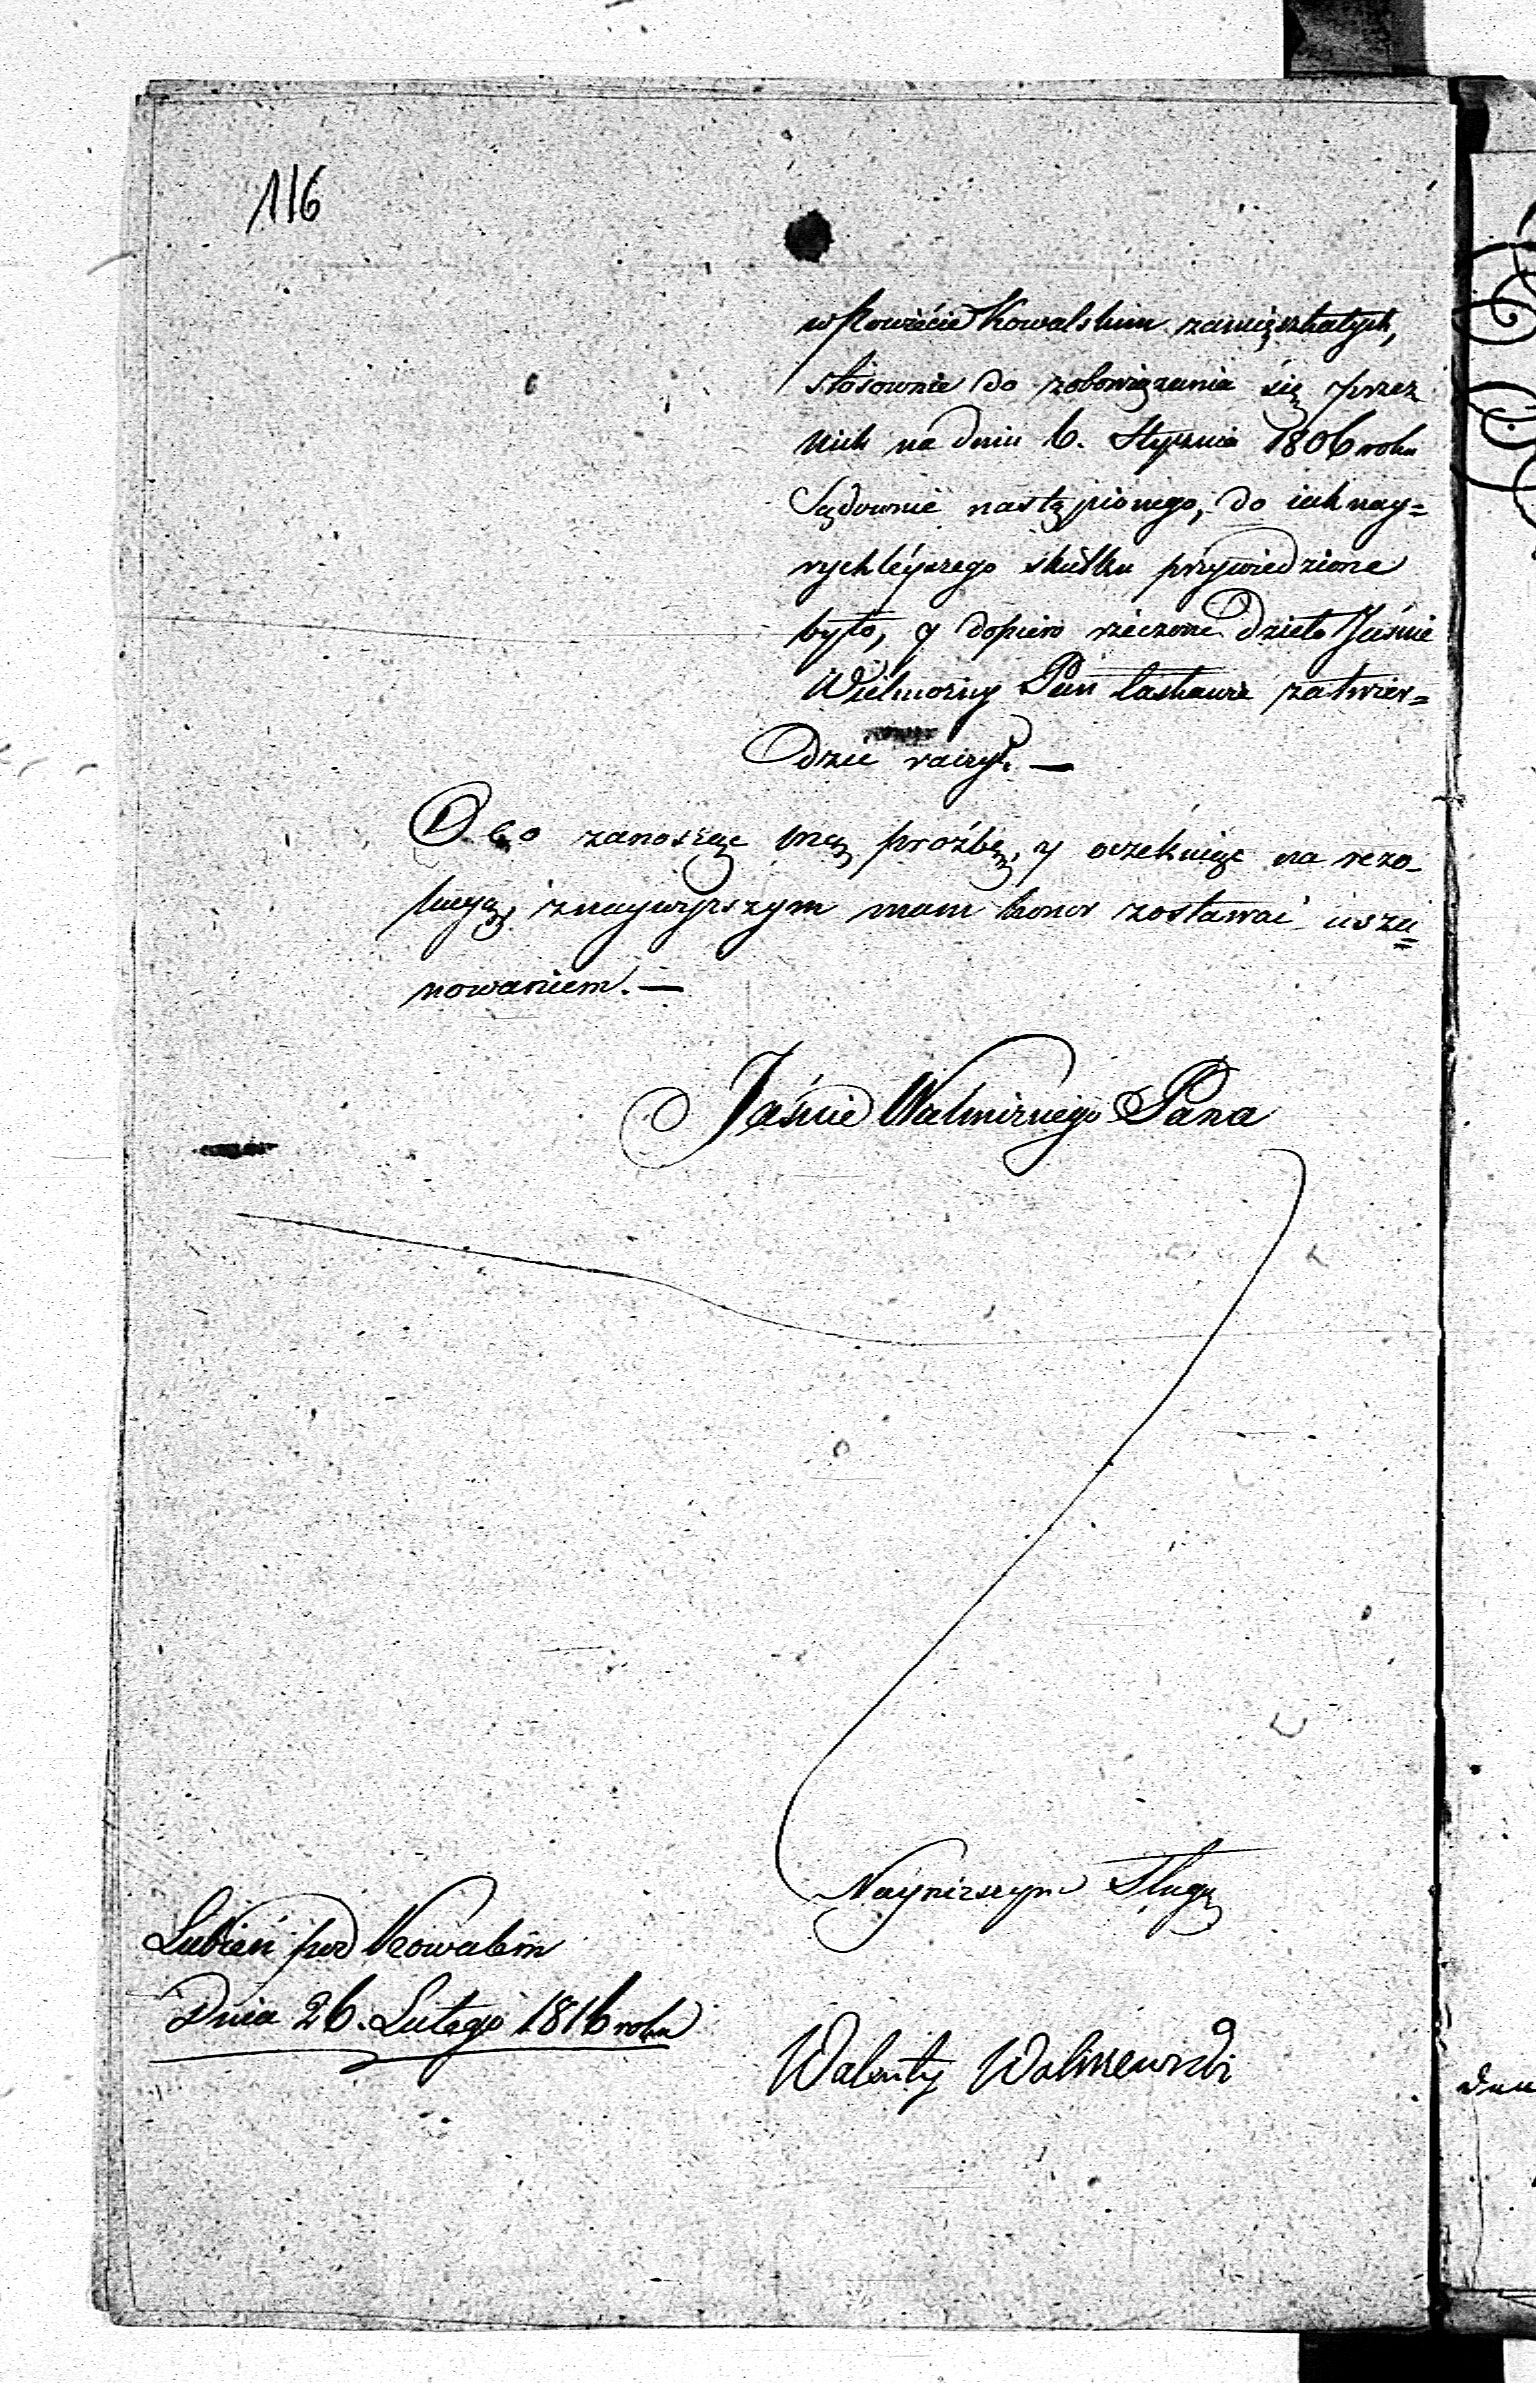 116
w Powiecie Kowalskim zamięszkałych,
stosownie do zobowiązania się przez
nich na dniu 6. Stycznia 1806 roku
Sądownie nastąpionego, do iak nay=
rychléyszego skutku przywiedzione
było, y dopiero rzeczone Dzieło Jaśnie
Wielmożny Pan łaskawie zatwier=
dzić raczył. —
O co zanosząc mą proźbę, y oczekuiąc na rezo-
lucyą, z naywyższym mam honor zostawać usza=
nowaniem. —
Jaśnie Wielmożnego Pana
Nayniższym Sługą
Lubień pod Kowalem
Dnia 26. Lutego 1816 roku
Walenty